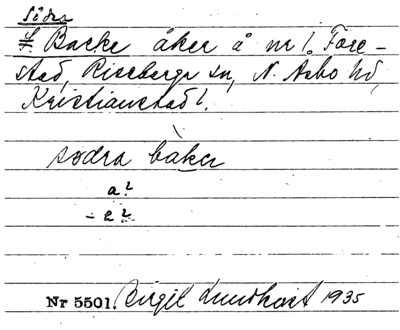 Södra
S. Backe åker å nr 1 Fare-
stad, Riseberga sn, N. Åsbo hd,
Kristianstad l.
södra bakar
a?
- e?
Nr 5501. Birgit Lundkvist 1935